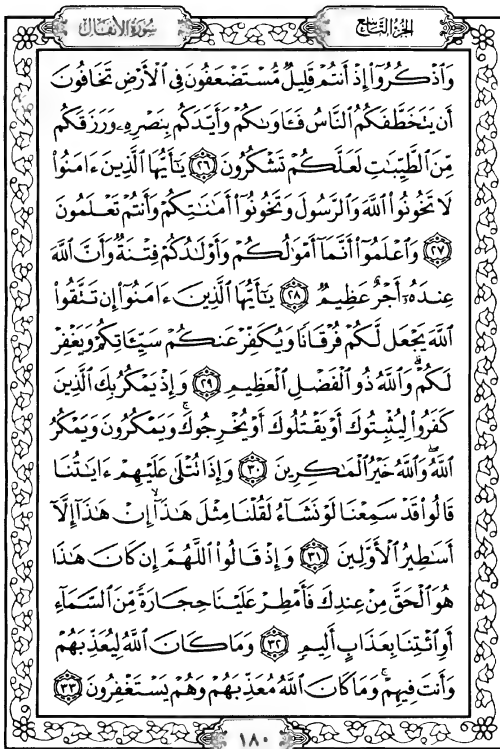 الجزء التاسع سورة الأنفال
وَاذْكُرُوا إِذْ أَنتُمْ قَلِيلٌ مُّسْتَضْعَفُونَ فِي الْأَرْضِ تَخَافُونَ
أَن يَتَخَطَّفَكُمُ النَّاسُ فَـَٔاوَىٰكُمْ وَأَيَّدَكُم بِنَصْرِهِۦ وَرَزَقَكُم
مِّنَ الطَّيِّبَٰتِ لَعَلَّكُمْ تَشْكُرُونَ ٢٦ يَٰٓأَيُّهَا الَّذِينَ ءَامَنُوا
لَا تَخُونُوا اللَّهَ وَالرَّسُولَ وَتَخُونُوٓا أَمَٰنَٰتِكُمْ وَأَنتُمْ تَعْلَمُونَ
٢٧ وَاعْلَمُوٓا أَنَّمَآ أَمْوَٰلُكُمْ وَأَوْلَٰدُكُمْ فِتْنَةٌ وَأَنَّ اللَّهَ
عِندَهُۥٓ أَجْرٌ عَظِيمٌ ٢٨ يَٰٓأَيُّهَا الَّذِينَ ءَامَنُوٓا إِن تَتَّقُوا
اللَّهَ يَجْعَل لَّكُمْ فُرْقَانًا وَيُكَفِّرْ عَنكُمْ سَيِّـَٔاتِكُمْ وَيَغْفِرْ
لَكُمْ ۗ وَاللَّهُ ذُو الْفَضْلِ الْعَظِيمِ ٢٩ وَإِذْ يَمْكُرُ بِكَ الَّذِينَ
كَفَرُوا لِيُثْبِتُوكَ أَوْ يَقْتُلُوكَ أَوْ يُخْرِجُوكَ ۚ وَيَمْكُرُونَ وَيَمْكُرُ
اللَّهُ ۖ وَاللَّهُ خَيْرُ الْمَٰكِرِينَ ٣٠ وَإِذَا تُتْلَىٰ عَلَيْهِمْ ءَايَٰتُنَا
قَالُوا قَدْ سَمِعْنَا لَوْ نَشَآءُ لَقُلْنَا مِثْلَ هَٰذَآ ۙ إِنْ هَٰذَآ إِلَّآ
أَسَٰطِيرُ الْأَوَّلِينَ ٣١ وَإِذْ قَالُوا اللَّهُمَّ إِن كَانَ هَٰذَا
هُوَ الْحَقَّ مِنْ عِندِكَ فَأَمْطِرْ عَلَيْنَا حِجَارَةً مِّنَ السَّمَآءِ
أَوِ ائْتِنَا بِعَذَابٍ أَلِيمٍ ٣٢ وَمَا كَانَ اللَّهُ لِيُعَذِّبَهُمْ
وَأَنتَ فِيهِمْ ۚ وَمَا كَانَ اللَّهُ مُعَذِّبَهُمْ وَهُمْ يَسْتَغْفِرُونَ ٣٣
١٨٠